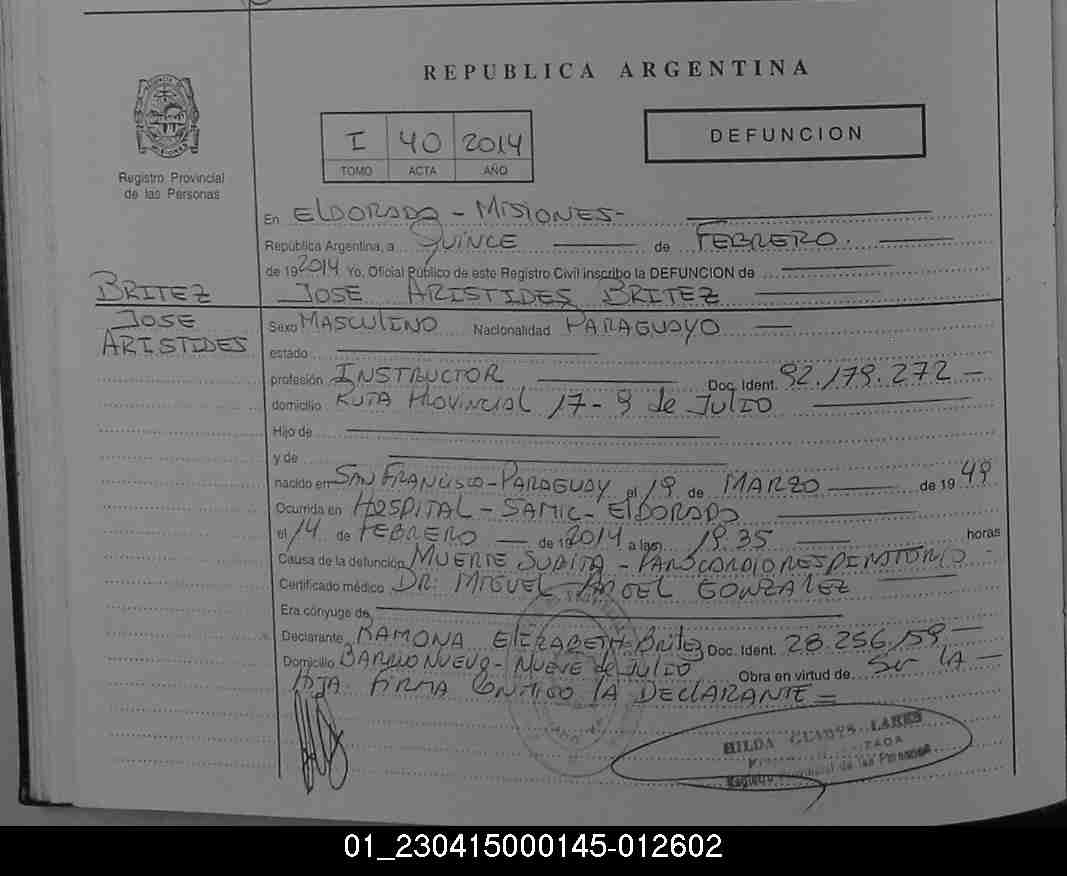 REPUBLICA ARGENTINA
I 40 2014
TOMO ACTA AÑO
DEFUNCION
Registro Provincial
de las Personas
En ELDORADO - MISIONES-
República Argentina, a QUINCE de FEBRERO.
de 192014 Yo, Oficial Público de este Registro Civil inscribo la DEFUNCION de
BRITEZ
JOSE
ARISTIDES
JOSE ARISTIDES BRITEZ
Sexo MASCULINO Nacionalidad PARAGUAYO
estado
profesión INSTRUCTOR Doc. Ident. 92.179.272 -
domicilio RUTA PROVINCIAL 17 - 9 de JULIO
Hijo de
y de
nacido en SAN FRANCISCO - PARAGUAY el 19 de MARZO de 19 49
Ocurrida en HOSPITAL - SAMIC - ELDORADO
el 14 de FEBRERO de 192014 a las 19.35 horas
Causa de la defunción MUERTE SUBITA - PAROCARDIORESPIRATORIO
Certificado médico DR. MIGUEL ANGEL GONZALEZ
Era cónyuge de
Declarante RAMONA ELIZABETH Britez Doc. Ident. 28.256.159
Domicilio BARRIO NUEVO - NUEVE de JULIO Obra en virtud de Ser LA -
HIJA FIRMA CONMIGO LA DECLARANTE =
HILDA GLADYS LARES
Registro Provincial de las Personas
01_230415000145-012602